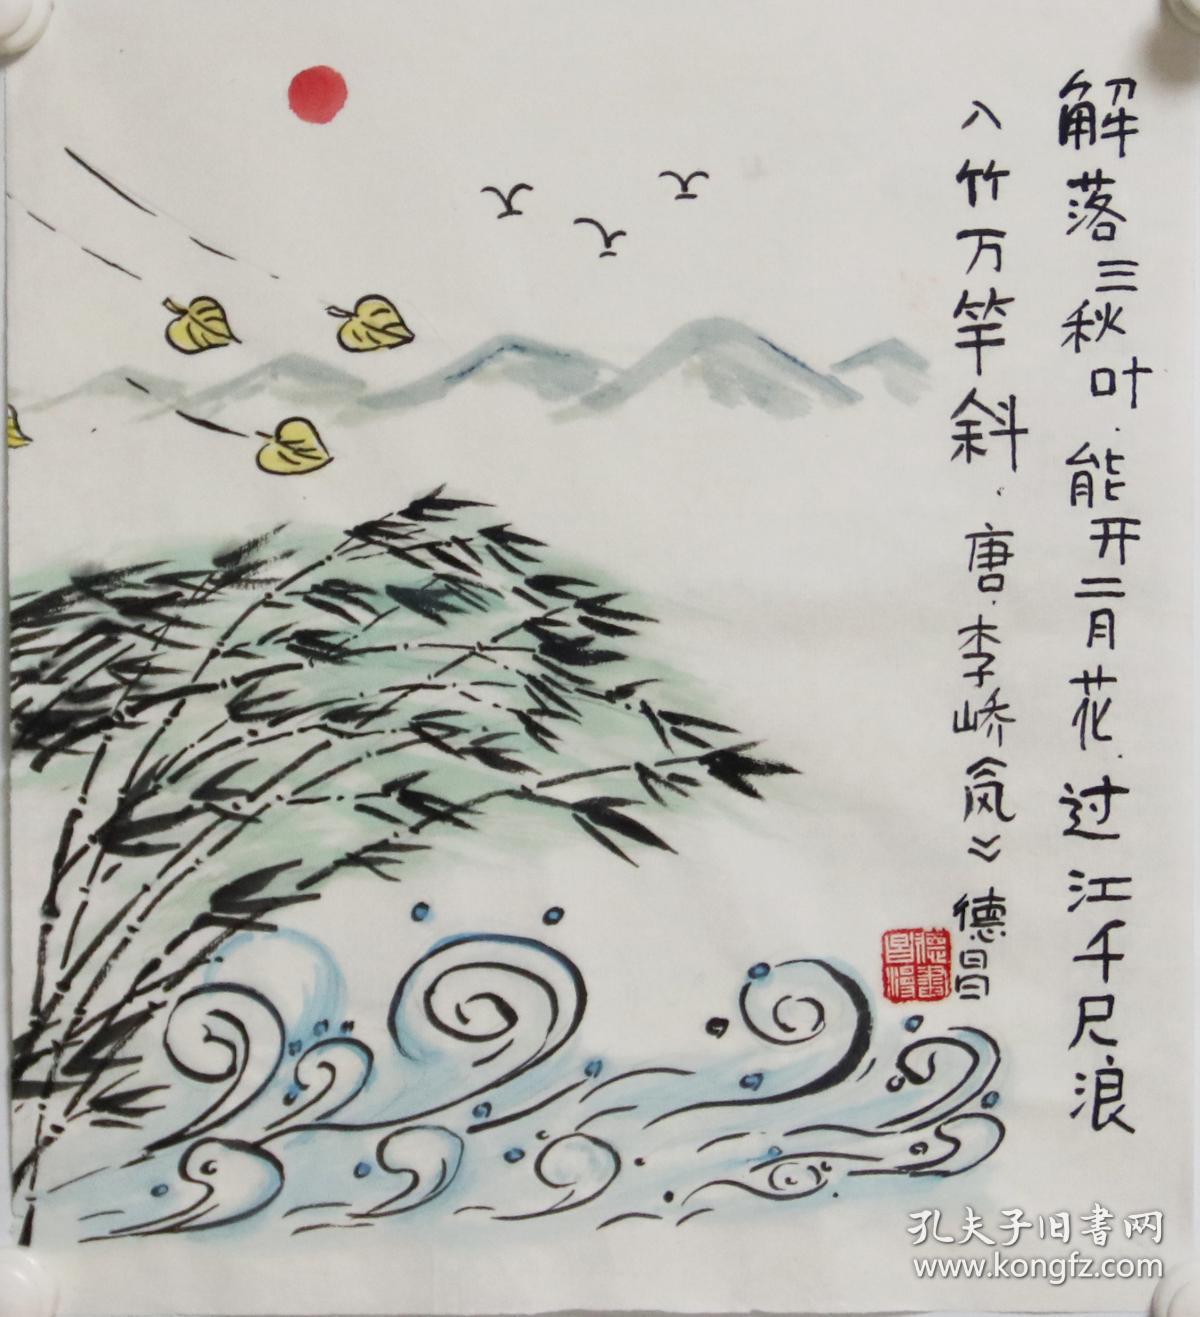 解落三秋叶.能开二月花.过江千尺浪
入竹万竿斜.唐.李峤《风》德昌
德昌书漫
孔夫子旧书网
www.kongfz.com